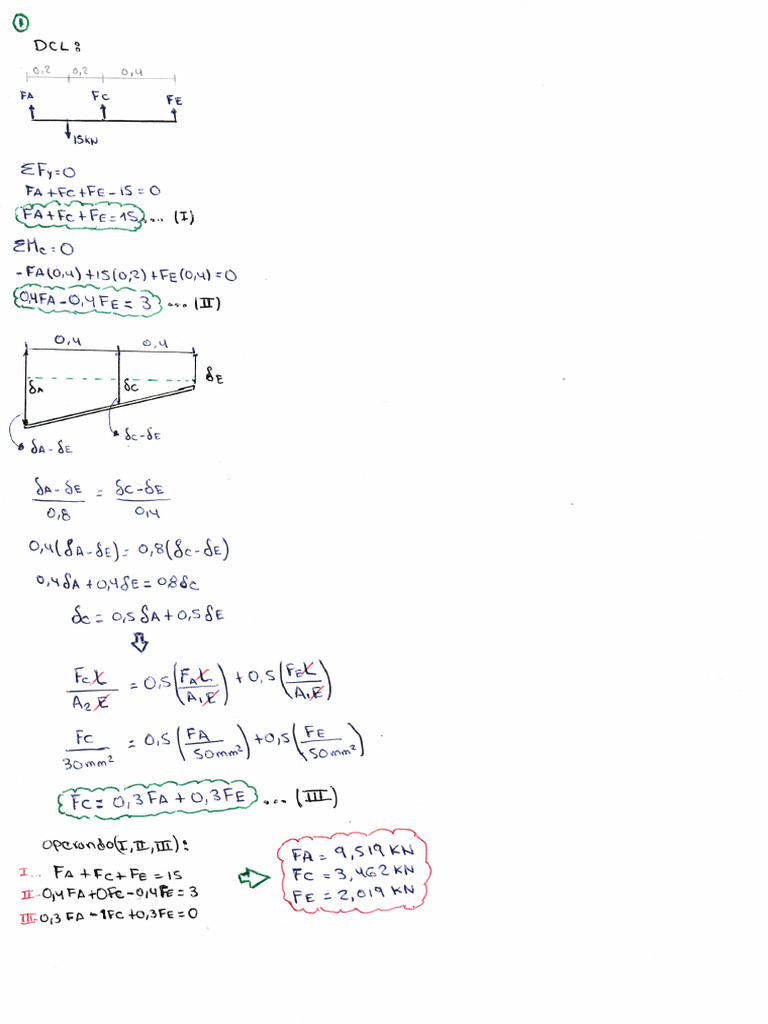 1
DCL:
0,2 0,2 0,4
FA FC FE
15KN
ΣFy=0
FA+FC+FE-15=0
FA+FC+FE=15.... (I)
ΣMc=0
-FA(0,4)+15(0,2)+FE(0,4)=0
0,4FA-0,4FE=3 ... (II)
0,4 0,4
δA δC δE
δC-δE
δA-δE
δA-δE/0,8 = δC-δE/0,4
0,4(δA-δE)=0,8(δC-δE)
0,4δA+0,4δE=0,8δC
δC=0,5δA+0,5δE
FcL/A2E = 0,5(FAL/A1E)+0,5(FEL/A1E)
FC/30mm² = 0,5(FA/50mm²)+0,5(FE/50mm²)
FC=0,3FA+0,3FE ... (III)
operando(I,II,III):
I... FA+FC+FE=15
II-0,4FA+0FC-0,4FE=3
III-0,3FA-1FC+0,3FE=0
FA=9,519KN
FC=3,462KN
FE=2,019KN